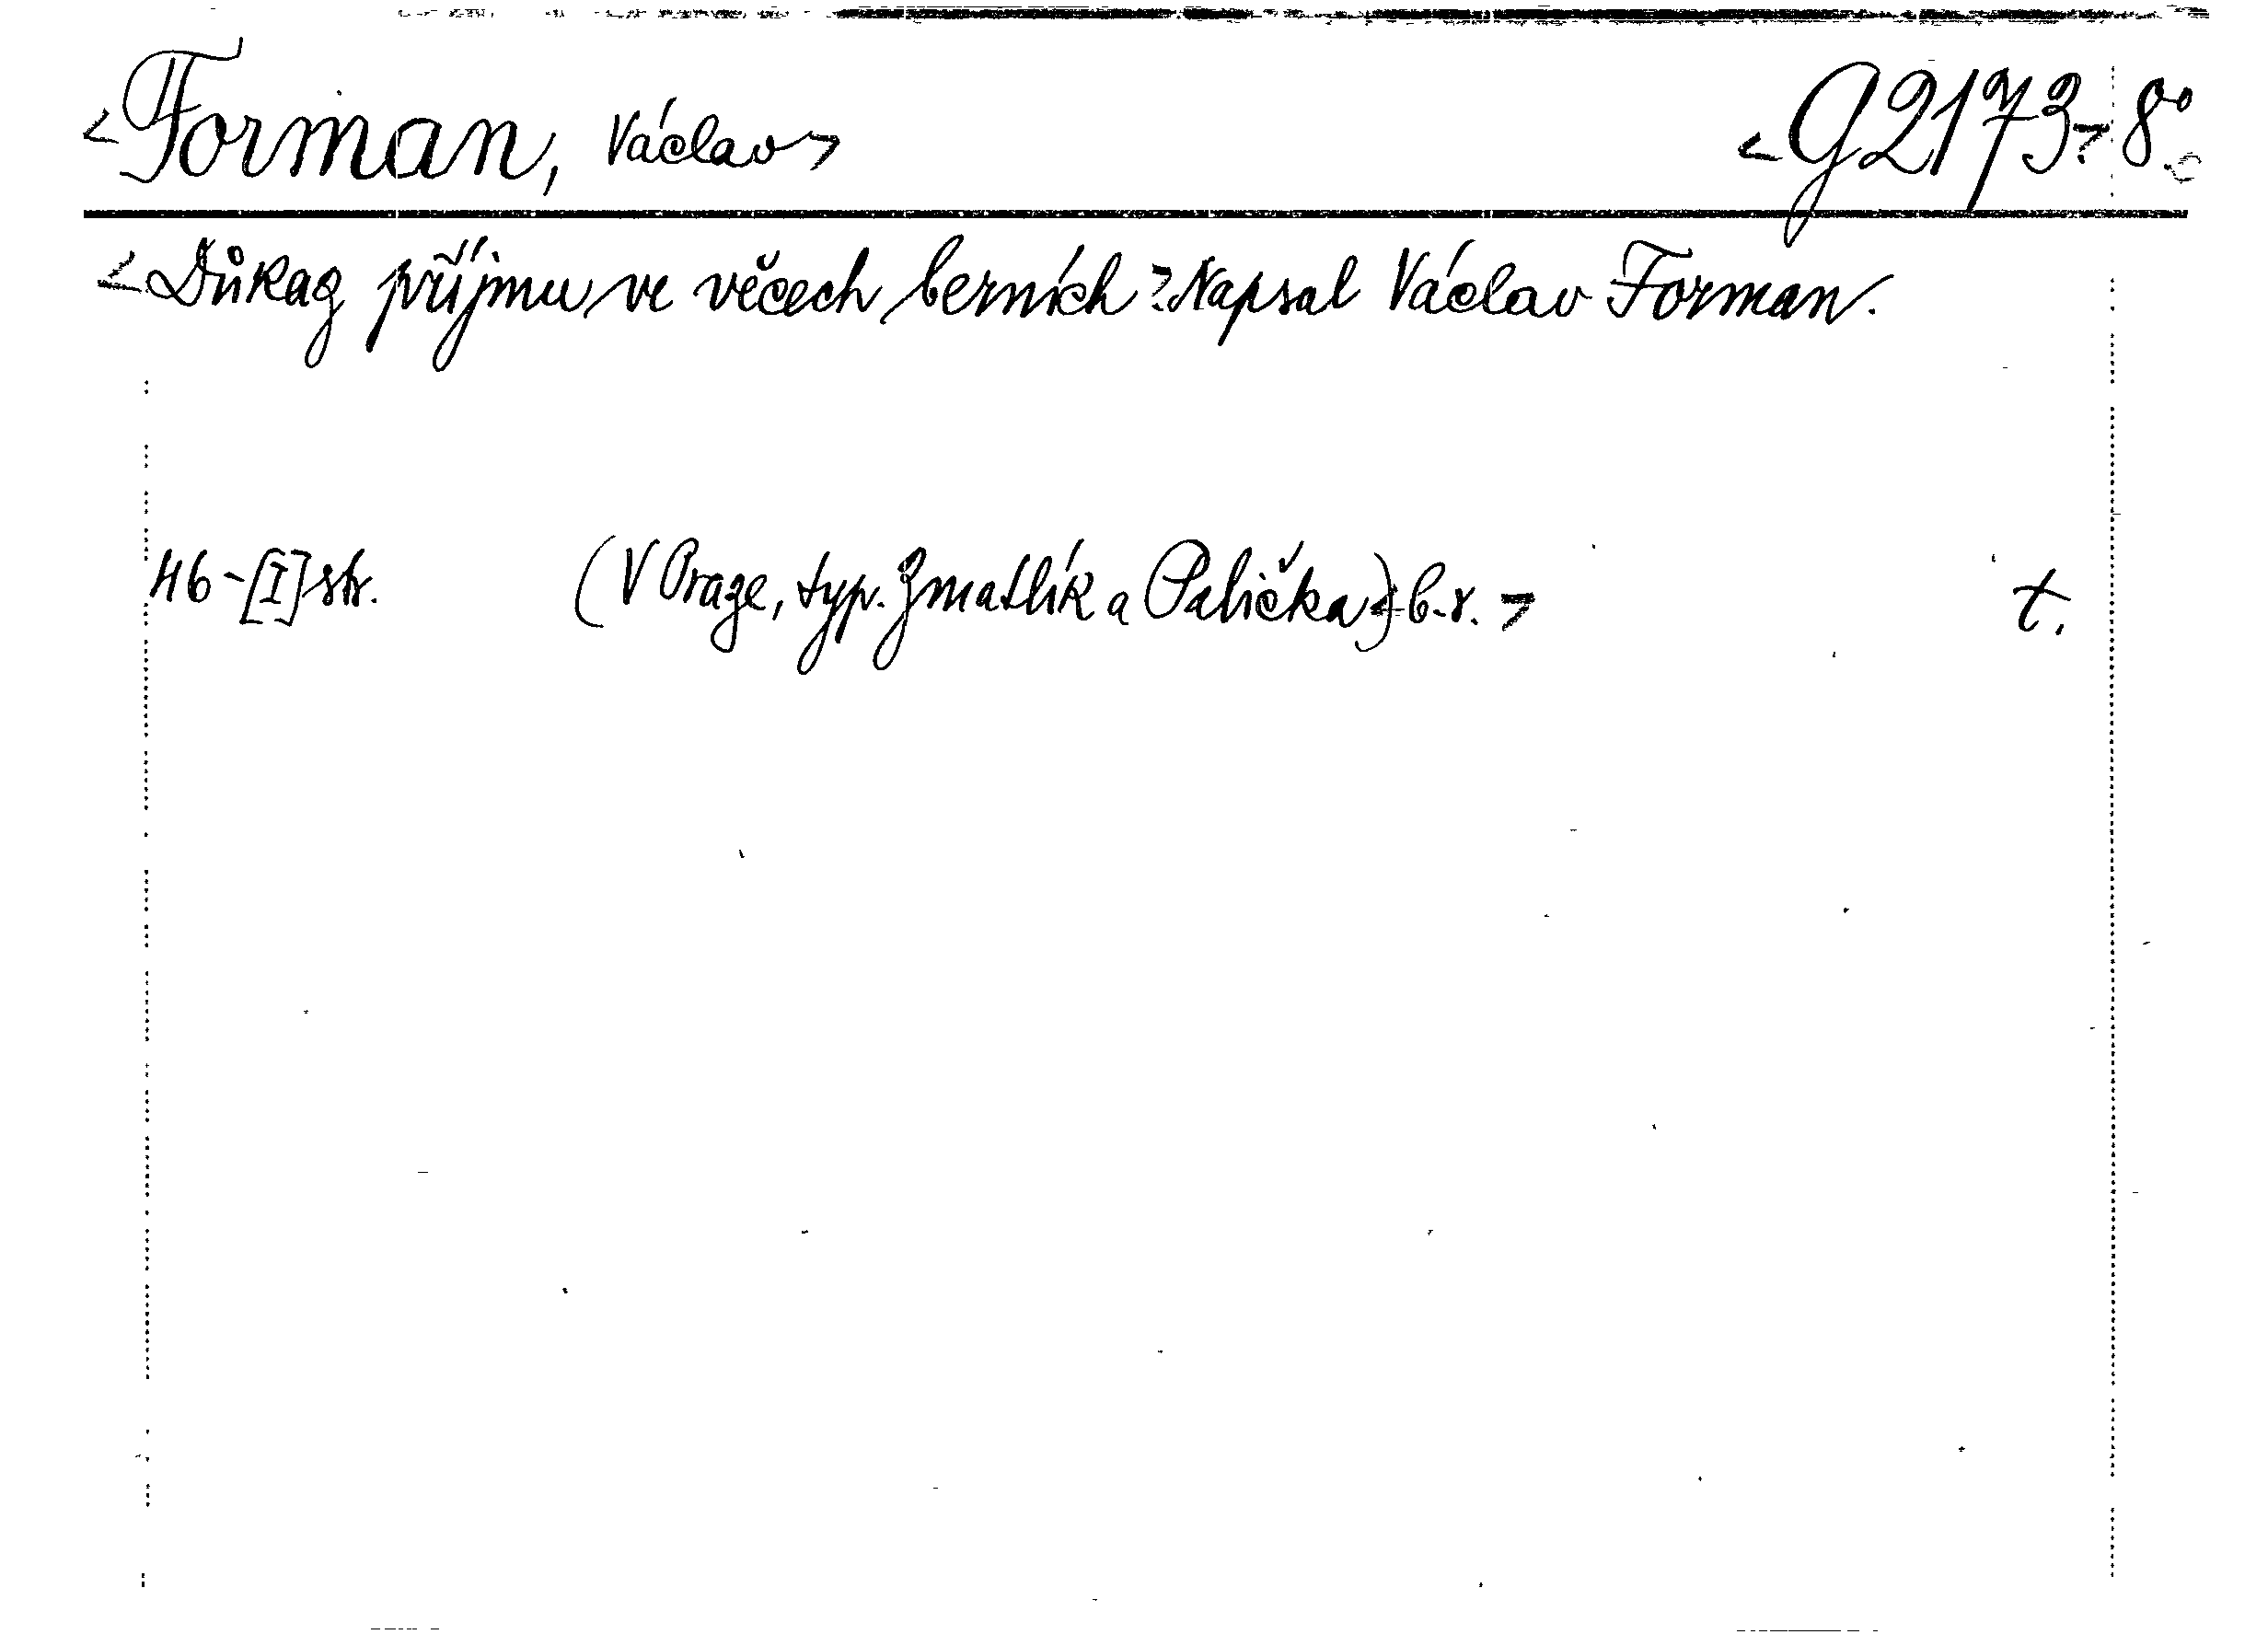 <Forman, Václav> <G2173> 8°
<Důkaz příjmu ve věcech berních.> Napsal Václav Forman.
46-[I] str. (V Praze, typ. Zmatlík a Palička) <b.r.> t.